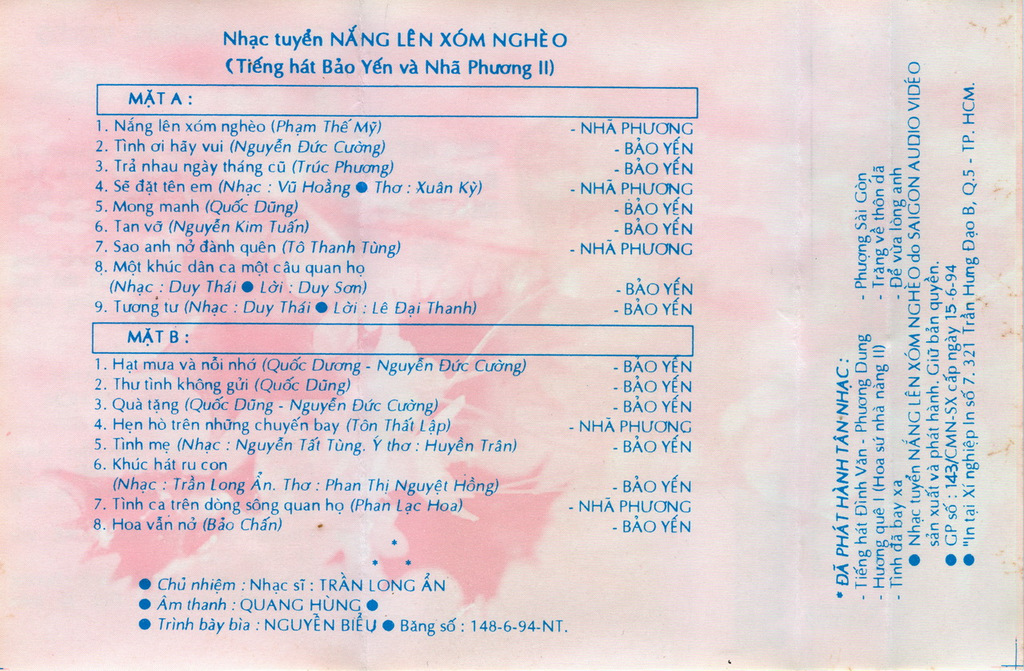 Nhạc tuyển NẮNG LÊN XÓM NGHÈO
(Tiếng hát Bảo Yến và Nhã Phương II)
MẶT A :
1. Nắng lên xóm nghèo (Phạm Thế Mỹ) - NHÃ PHƯƠNG
2. Tình ơi hãy vui (Nguyễn Đức Cường) - BẢO YẾN
3. Trả nhau ngày tháng cũ (Trúc Phương) - BẢO YẾN
4. Sẽ đặt tên em (Nhạc : Vũ Hoằng ● Thơ : Xuân Kỳ) - NHÃ PHƯƠNG
5. Mong manh (Quốc Dũng) - BẢO YẾN
6. Tan vỡ (Nguyễn Kim Tuấn) - BẢO YẾN
7. Sao anh nở đành quên (Tô Thanh Tùng) - NHÃ PHƯƠNG
8. Một khúc dân ca một câu quan họ
(Nhạc : Duy Thái ● Lời : Duy Sơn) - BẢO YẾN
9. Tương tư (Nhạc : Duy Thái ● Lời : Lê Đại Thanh) - BẢO YẾN
MẶT B :
1. Hạt mưa và nỗi nhớ (Quốc Dương - Nguyễn Đức Cường) - BẢO YẾN
2. Thư tình không gửi (Quốc Dũng) - BẢO YẾN
3. Quà tặng (Quốc Dũng - Nguyễn Đức Cường) - BẢO YẾN
4. Hẹn hò trên những chuyến bay (Tôn Thất Lập) - NHÃ PHƯƠNG
5. Tình mẹ (Nhạc : Nguyễn Tất Tùng. Ý thơ : Huyền Trân) - BẢO YẾN
6. Khúc hát ru con
(Nhạc : Trần Long Ẩn. Thơ : Phan Thị Nguyệt Hồng) - BẢO YẾN
7. Tình ca trên dòng sông quan họ (Phan Lạc Hoa) - NHÃ PHƯƠNG
8. Hoa vẫn nở (Bảo Chấn) - BẢO YẾN
*
* *
● Chủ nhiệm : Nhạc sĩ : TRẦN LONG ẨN
● Âm thanh : QUANG HÙNG ●
● Trình bày bìa : NGUYỄN BIỂU ● Băng số : 148-6-94-NT.
* ĐÃ PHÁT HÀNH TÂN NHẠC :
- Tiếng hát Đình Văn - Phương Dung - Phượng Sài Gòn
- Hương quê I (Hoa sứ nhà nàng II) - Trăng về thôn dã
- Tình đã bay xa - Để vừa lòng anh
● Nhạc tuyển NẮNG LÊN XÓM NGHÈO do SAIGON AUDIO VIDEO
sản xuất và phát hành. Giữ bản quyền.
● GP số : 143/CMN-SX cấp ngày 15-6-94
● "In tại Xí nghiệp In số 7. 321 Trần Hưng Đạo B, Q.5 - TP. HCM.